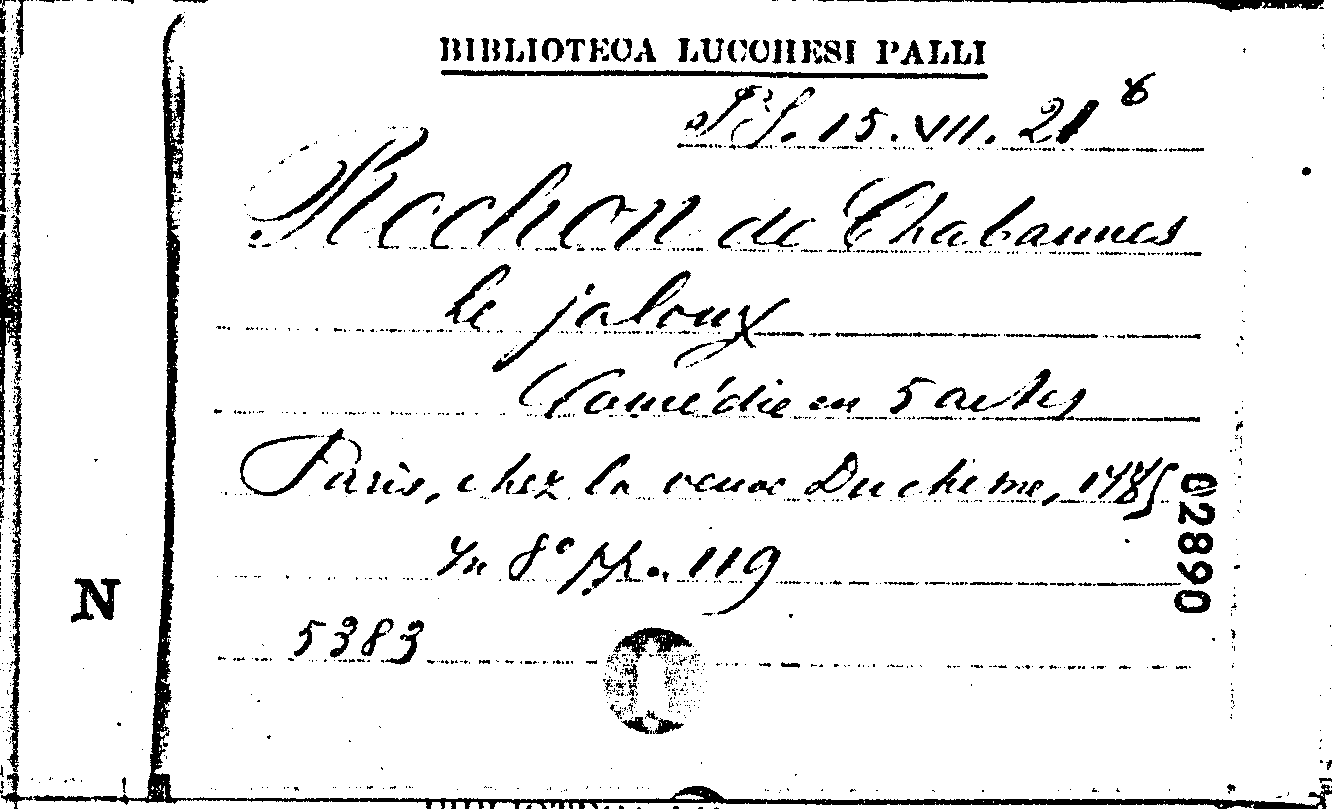 BIBLIOTECA LUCCHESI PALLI
P.S. 15. VII. 21 6
Rochon de Chabannes
Le jaloux
Comédie en 5 actes
Paris, chez la veuve Duchesne, 1785
In 8° pp. 119
02890
N
5383